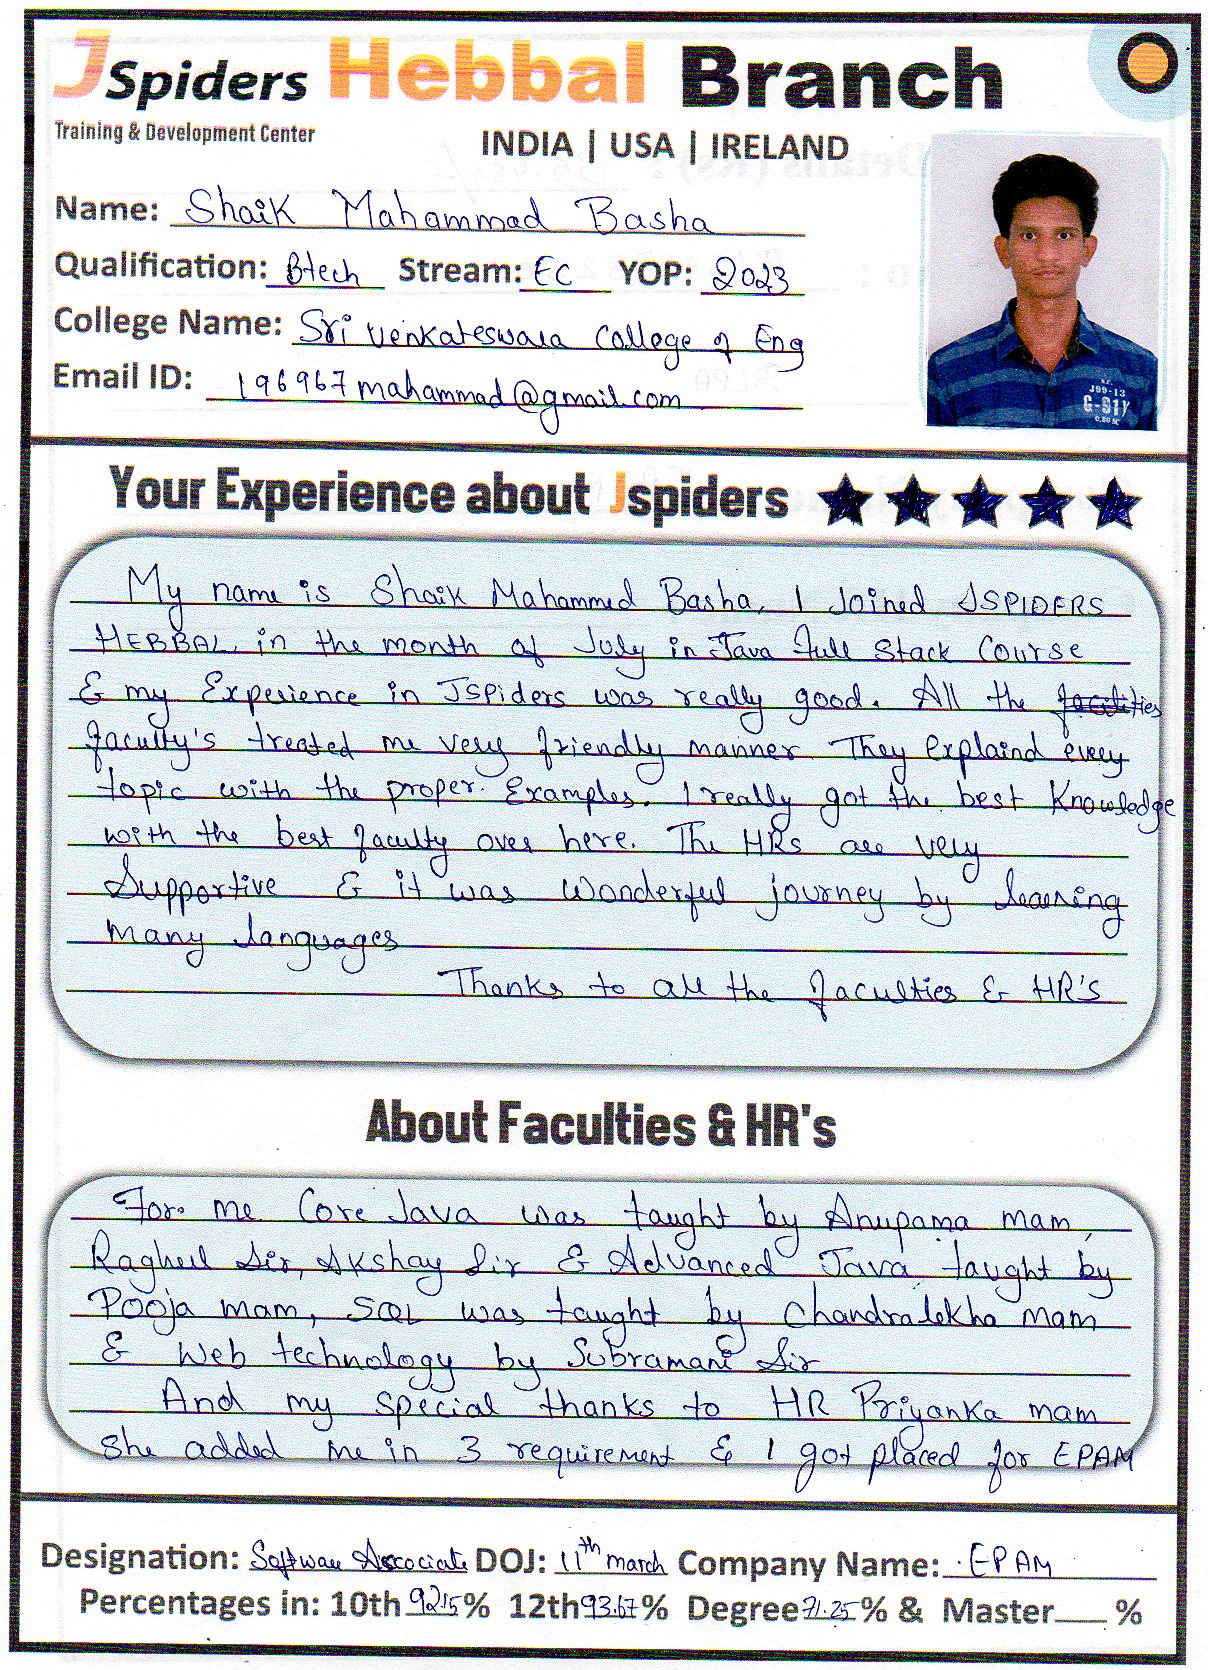 JSpiders Hebbal Branch
Training & Development Center
INDIA | USA | IRELAND
Name: Shaik Mahammad Basha
Qualification: Btech Stream: EC YOP: 2023
College Name: Sri Venkateswara College of Eng
Email ID: 196967mahammad@gmail.com
J99-13
G-S1Y
Your Experience about Jspiders
My name is Shaik Mahammed Basha, I Joined JSPIDERS
HEBBAL, in the month of July in Java Full Stack Course
& my Experience in JSpiders was really good. All the facilities
faculty's treated me very friendly manner. They explaind every
topic with the proper. Examples. I really got the best Knowledge
with the best faculty over here. The HRs are very
Supportive & it was wonderful journey by learning
many languages
Thanks to all the faculties & HR's
About Faculties & HR's
For me Core Java was taught by Anupama mam,
Raghul Sir, Akshay Sir & Advanced Java taught by
Pooja mam, SQL was taught by Chandralekha mam
& Web technology by Subramani Sir
And my special thanks to HR Priyanka mam
She added me in 3 requirement & I got placed for EPAM
Designation: Software Associate DOJ: 11th march Company Name: EPAM
Percentages in: 10th 92.15% 12th 93.67% Degree 71.25% & Master %